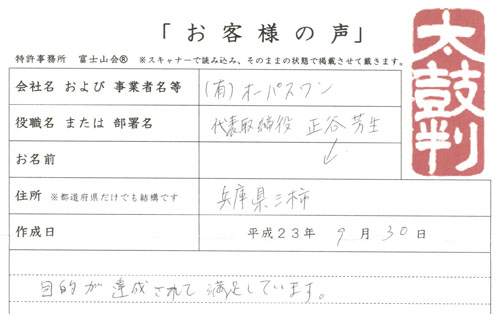 「お客様の声」
特許事務所 富士山会® ※スキャナーで読み込み、そのままの状態で掲載させて戴きます。
太鼓判
会社名 および 事業者名等 (有)オーパスワン
役職名 または 部署名 代表取締役 正谷芳生
お名前 ↓
住所 ※都道府県だけでも結構です 兵庫県三木市
作成日 平成23年 9月30日
目的が達成されて満足しています。